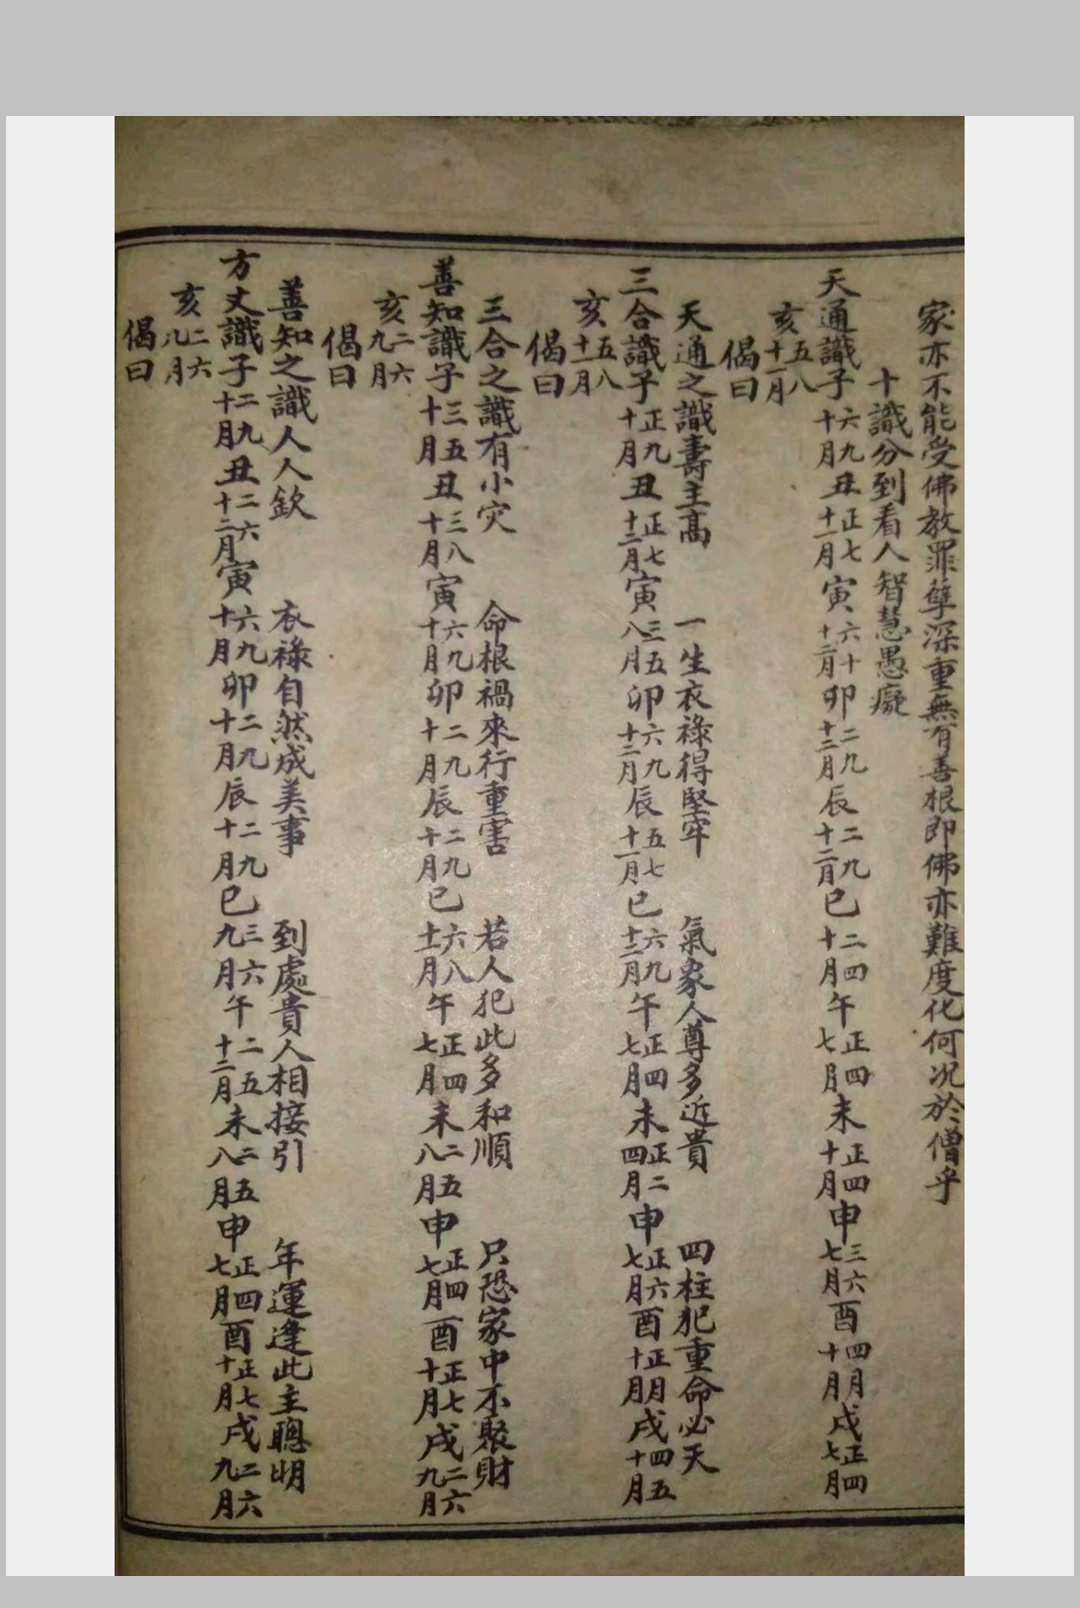 家亦不能受佛教罪孽深重無有善根即佛亦難度化何况於僧乎
十識分到看人智慧愚癡
天通識子六九十月丑正七十一月寅六十十二月卯二九十二月辰二九十二月巳二四十月午正四七月未正四十月申三六七月酉四月十月戌正四七月
亥五八十一月
偈曰
天通之識壽主高 一生衣祿得堅牢 氣象人尊多近貴 四柱犯重命必夭
三合識子正九十月丑正七十二月寅三五八月卯六九十二月辰五七十一月巳六九十二月午正四七月未正二四月申正六七月酉正月十月戌四五十月
亥五八十一月
偈曰
三合之識有小灾 命根禍來行重害 若人犯此多和順 只恐家中不聚財
善知識子三五十月丑三八十月寅六九十月卯二九十月辰二九十月巳六八十一月午正四七月未二五八月申正四七月酉正七十月戌二六九月
亥二六九月
偈曰
善知之識人人欽 衣祿自然成美事 到處貴人相接引 年運逢此主聰明
方丈識子二九十月丑二六十二月寅六九十月卯二九十月辰二九十月巳三六九月午二五十二月未二五八月申正四七月酉正七十月戌二六九月
亥二六九月
偈曰